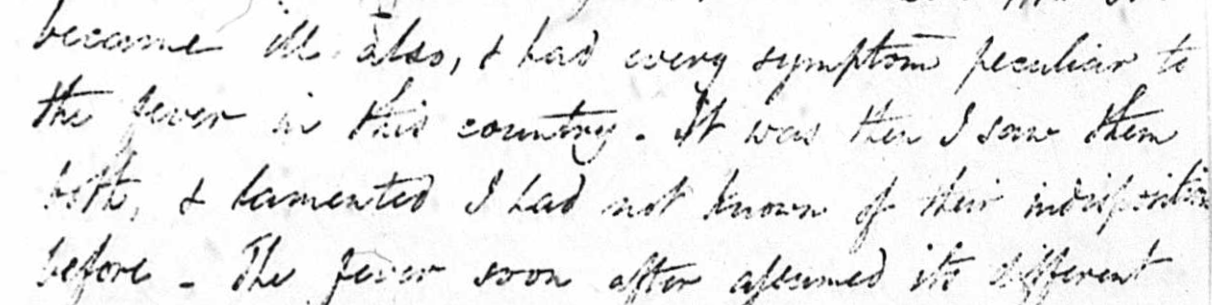 became ill also, & had every symptom peculiar to
the fever in this country. It was then I saw them
both, & lamented I had not known of their indisposition
before - The fever soon after assumed its different